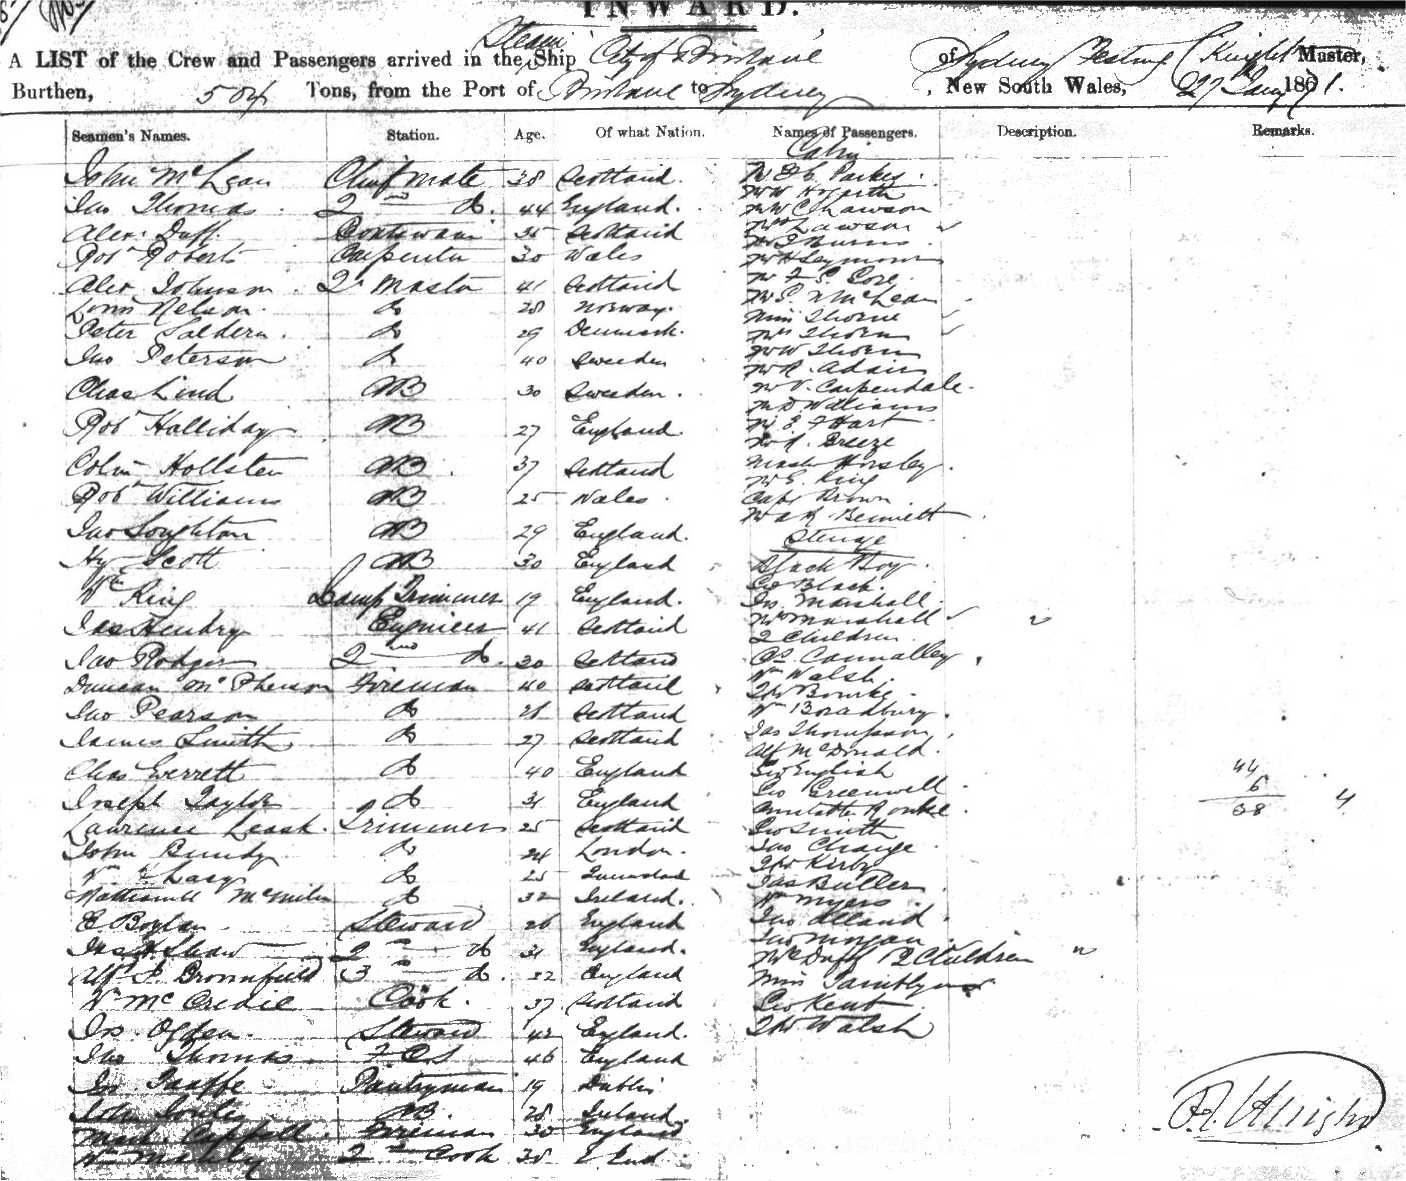 INWARD.
A LIST of the Crew and Passengers arrived in the Steam Ship City of Brisbane of Sydney Knight Master,
Burthen, 504 Tons, from the Port of Brisbane to Sydney, New South Wales, 27 Jany 1871.
Seamen's Names. Station. Age. Of what Nation. Names of Passengers. Description. Remarks.
Cabin
John McLean Chief Mate 38 Scotland. Parkes
Jno Thomas 2nd do. 44 England. Mr W Hogarth
Mr W C Lawson
Alexr Duff Boatswain 35 Scotland Mrs Lawson
Robt Roberts Carpenter 30 Wales Burns
Mr H Seymour
Alexr Johnson Qr Master 41 Scotland Mr F. S.
Nelson do 28 Norway. McLean
Peter do 29 Denmark. Miss Thorne
Mrs Thorn
Jno Peterson do 40 Sweeden Mr W Thorn
Mr R. Adair
Chas Lind AB 30 Sweeden. Mr V. Carpendale
Mr D Williams
Robt Halliday AB 27 England. Mr E. F Hart
Mr A. Breeze
Colin Hollsten AB 37 Scotland Master Horsley
Mr E. King
Robt Williams AB 25 Wales. Capt Brown
Mr Bennett
Jno Loughton AB 29 England. Steerage
Hy Scott AB 30 England Black Boy.
Geo Black.
Wm King Lamp Trimmer 19 England. Jno. Marshall.
Mrs Marshall
Jas Hendry Engineer 41 Scotland 2 Children
Jno Rodger 2nd do. 30 Scotland Connalley
Wm Walsh.
Duncan McPherson Fireman 40 Scotland Thos Bourke.
Jno Pearson do 28 Scotland Wm Bradbury.
James Smith do 27 Scotland Jas Thompson
Alf McDonald.
Chas Everrett do 40 England Geo English
44
Geo Greenwell
6
Joseph Taylor do 31 England Rourke
38 4
Lawrence Leask. Trimmer 25 Scotland Geo Smith
John Bundy do 24 London. Jno Change
Thos Kirby
Wm Lacy do 25 Jas Butler
Nathaniell McMillen do 32 Ireland. Wm Myers
E Boylan Steward 26 England Jno
Jno Morgan
Jas A Shaw 2nd do 31 England. Mrs Duff 2 Children
Alfd F. Bromfield 3rd do. 22 England Miss Tamblyn
Wm McCredie Cook. 37 Scotland Geo Kent
Jos. Ogden. Steward 42 England. Thos Walsh
Jno Thomas F C S 46 England
Taaffe Pantryman 19 Dublin
John AB. 28 Ireland
Mark Cappell Fireman 30 England
Wm 2nd Cook 38 England
Knight